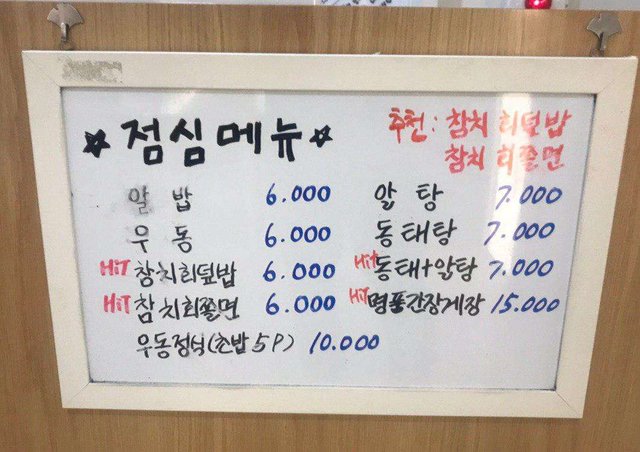 ★ 점심메뉴 ★
추천: 참치회덮밥
참치회쫄면
알밥 6.000
우동 6.000
HiT 참치회덮밥 6.000
HiT 참치회쫄면 6.000
우동정식(초밥5P) 10.000
알탕 7.000
동태탕 7.000
HiT 동태+알탕 7.000
HiT 명품간장게장 15.000